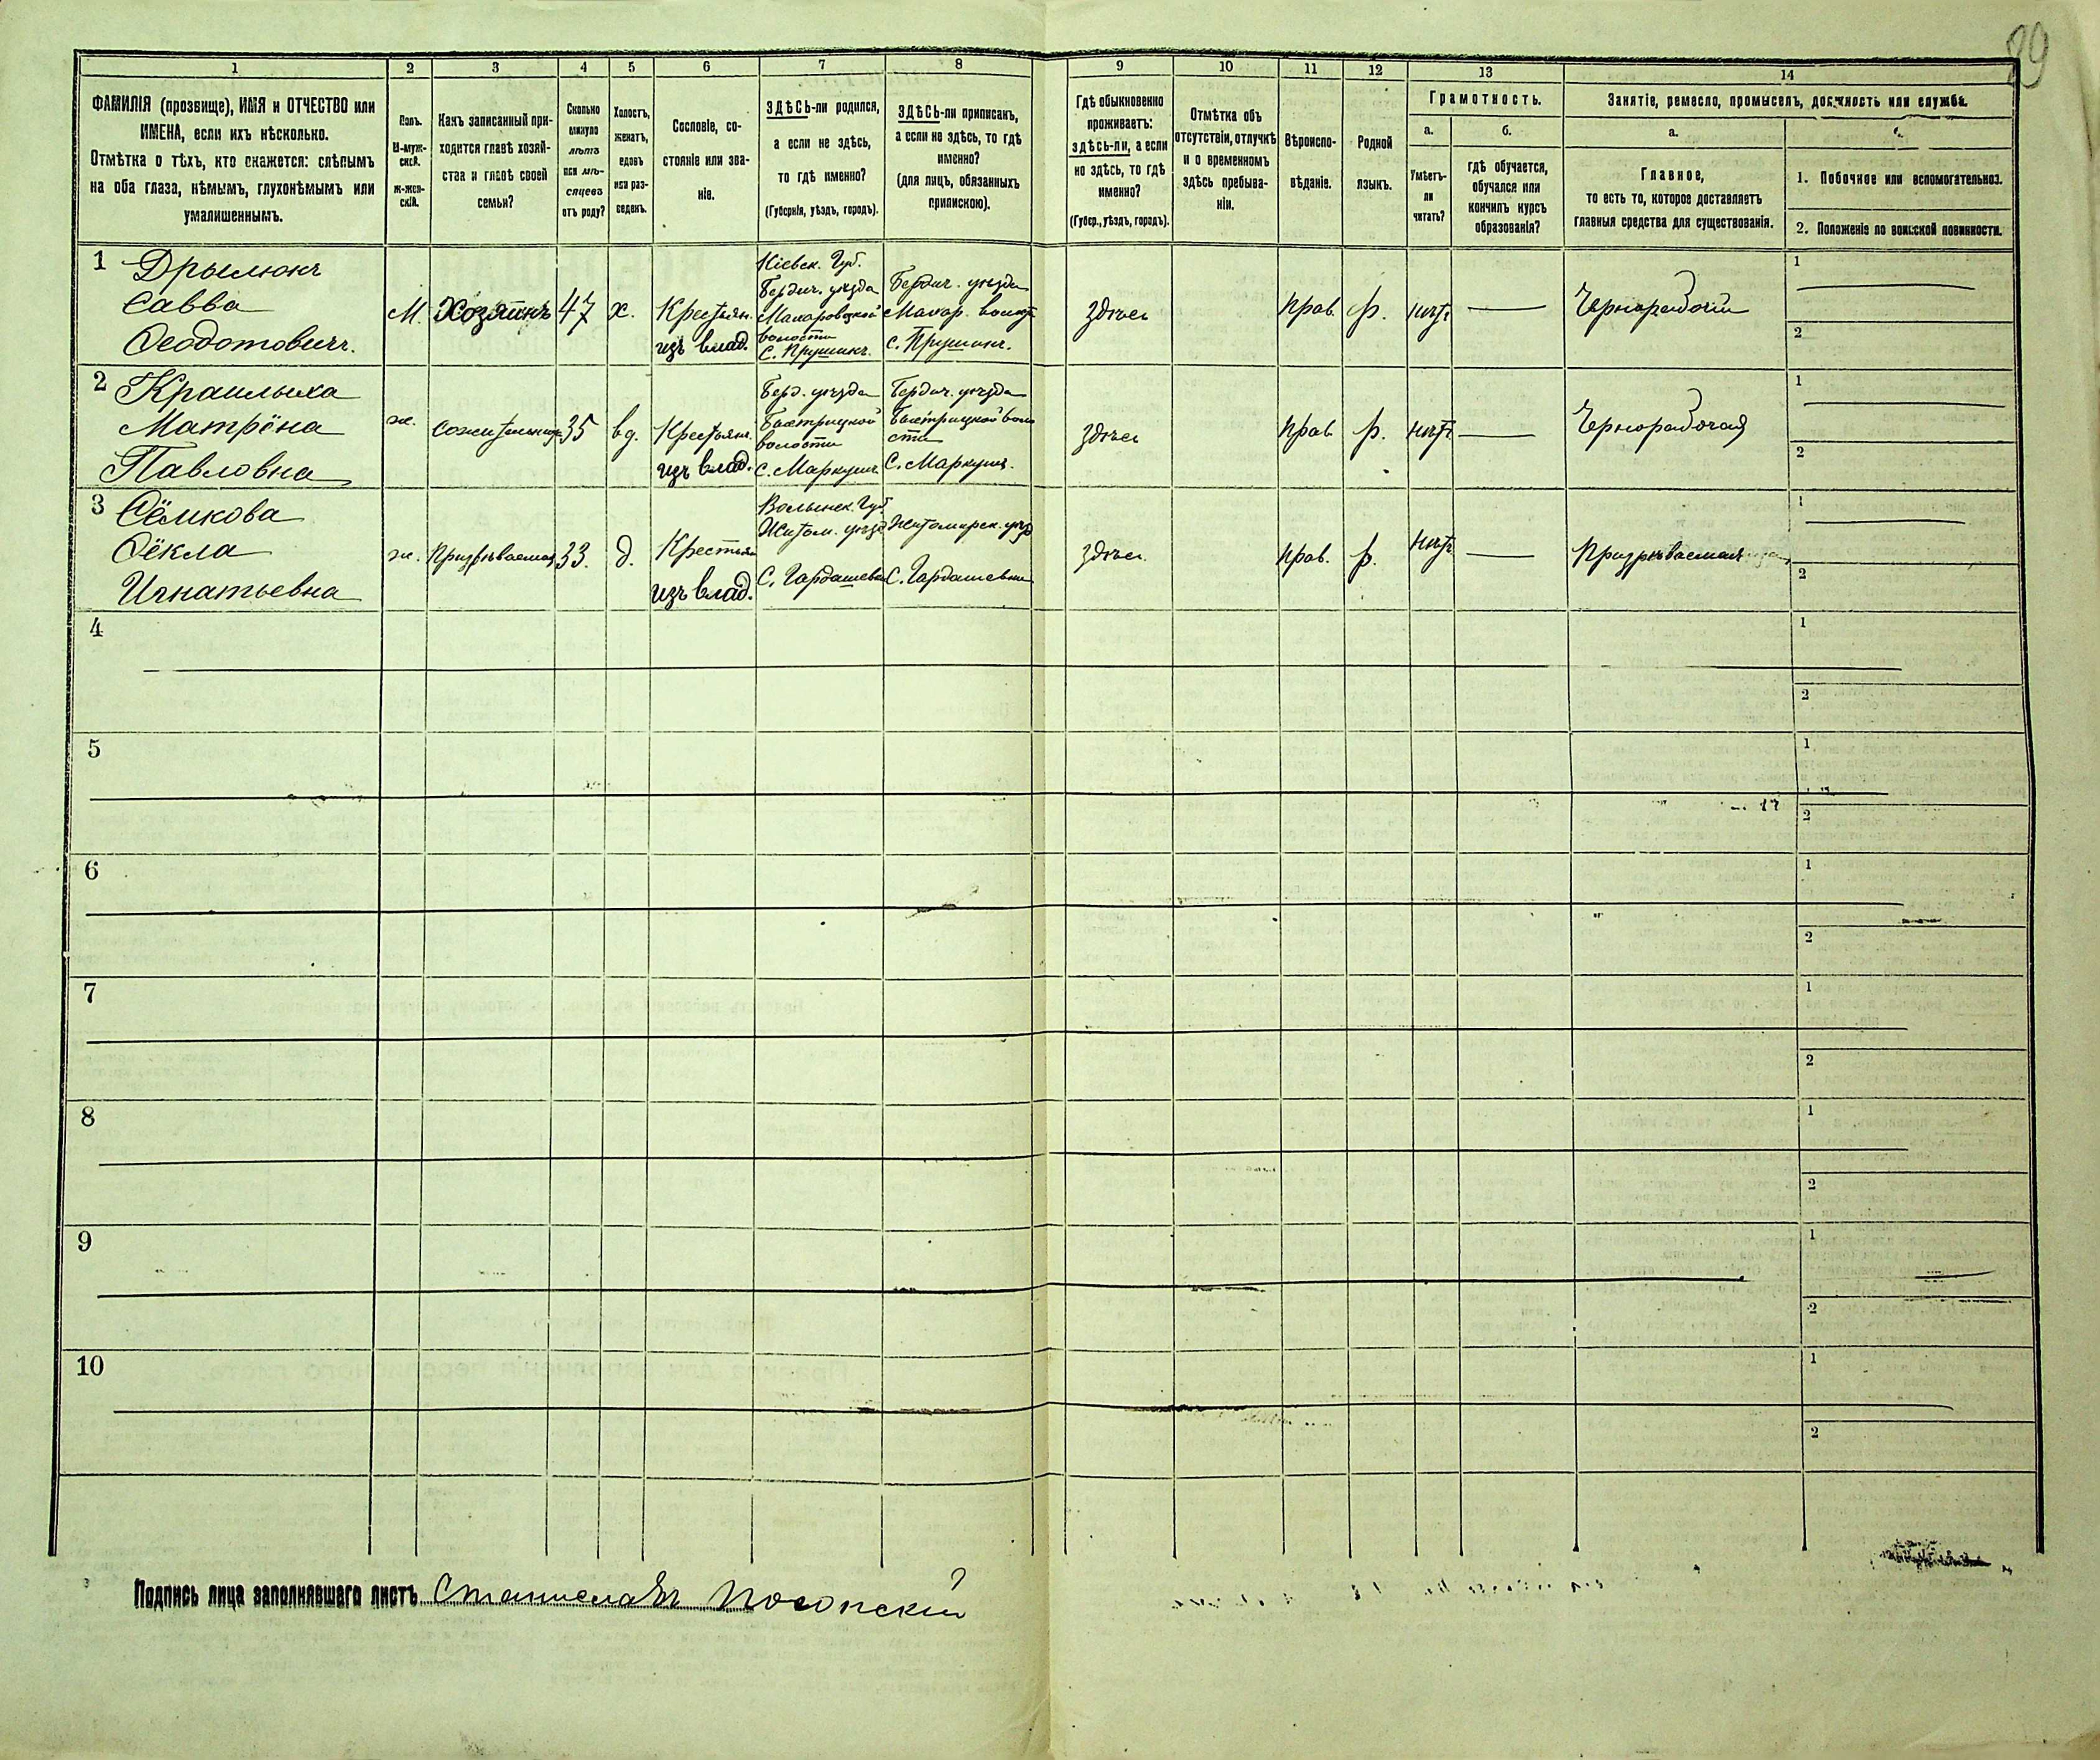 89
1 2 3 4 5 6 7 8 9 10 11 12 13 14
ФАМИЛІЯ (прозвище), ИМЯ и ОТЧЕСТВО или
ИМЕНА, если ихъ нѣсколько.
Отмѣтка о тѣхъ, кто окажется: слѣпымъ
на оба глаза, нѣмымъ, глухонѣмымъ или
умалишеннымъ.
Полъ.
М-муж-
ской.
Ж-жен-
скій.
Какъ записанный при-
ходится главѣ хозяй-
ства и главѣ своей
семьи?
Сколько
минуло
лѣтъ
или мѣ-
сяцевъ
отъ роду?
Холостъ,
женатъ,
вдовъ
или раз-
веденъ.
Сословіе, со-
стояніе или зва-
ніе.
ЗДѢСЬ-ли родился,
а если не здѣсь,
то гдѣ именно?
(Губернія, уѣздъ, городъ).
ЗДѢСЬ-ли приписанъ,
а если не здѣсь, то гдѣ
именно?
(для лицъ, обязанныхъ
припискою).
Гдѣ обыкновенно
проживаетъ:
здѣсь-ли, а если
не здѣсь, то гдѣ
именно?
(Губер., уѣздъ, городъ).
Отмѣтка объ
отсутствіи, отлучкѣ
и о временномъ
здѣсь пребыва-
ніи.
Вѣроиспо-
вѣданіе.
Родной
языкъ.
Грамотность.
а.
Умѣетъ-
ли
читать?
б.
гдѣ обучается,
обучался или
кончилъ курсъ
образованія?
Занятіе, ремесло, промыселъ, должность или служба.
а.
Главное,
то есть то, которое доставляетъ
главныя средства для существованія.
1. Побочное или вспомогательное.
2. Положеніе по воинской повинности.
1 Дрылюкъ
Савва
Ѳеодотовичъ.
М.
Хозяинъ
47
х.
Крестьян.
изъ влад.
Кіевск. Губ.
Бердич. уѣзда
Макаровской
волости
С.
Бердич. уѣзда
Макар.
с.
здѣсь
прав.
р.
нѣтъ
Чернорабочій
1
2
2
Матрёна
Павловна
ж.
сожительница
35
вд.
Крестьян.
изъ влад.
Берд. уѣзда
волости
С. Маркуши.
Бердич. уѣзда
С. Маркуши.
здѣсь
прав.
р.
нѣтъ
Чернорабочая
1
2
3 Сёмкова
Ѳёкла
Игнатьевна
ж.
Призрѣваемая
33.
д.
Крестьян
изъ влад.
Волынск. Губ
Житом. уѣзд
С. Гардашевка
Житомирск. уѣзд
С. Гардашевки
здѣсь.
прав.
р.
нѣтъ
Призрѣваемая
1
2
4
1
2
5
1
2
6
1
2
7
1
2
8
1
2
9
1
2
10
1
2
Подпись лица заполнявшаго листъ Станиславъ